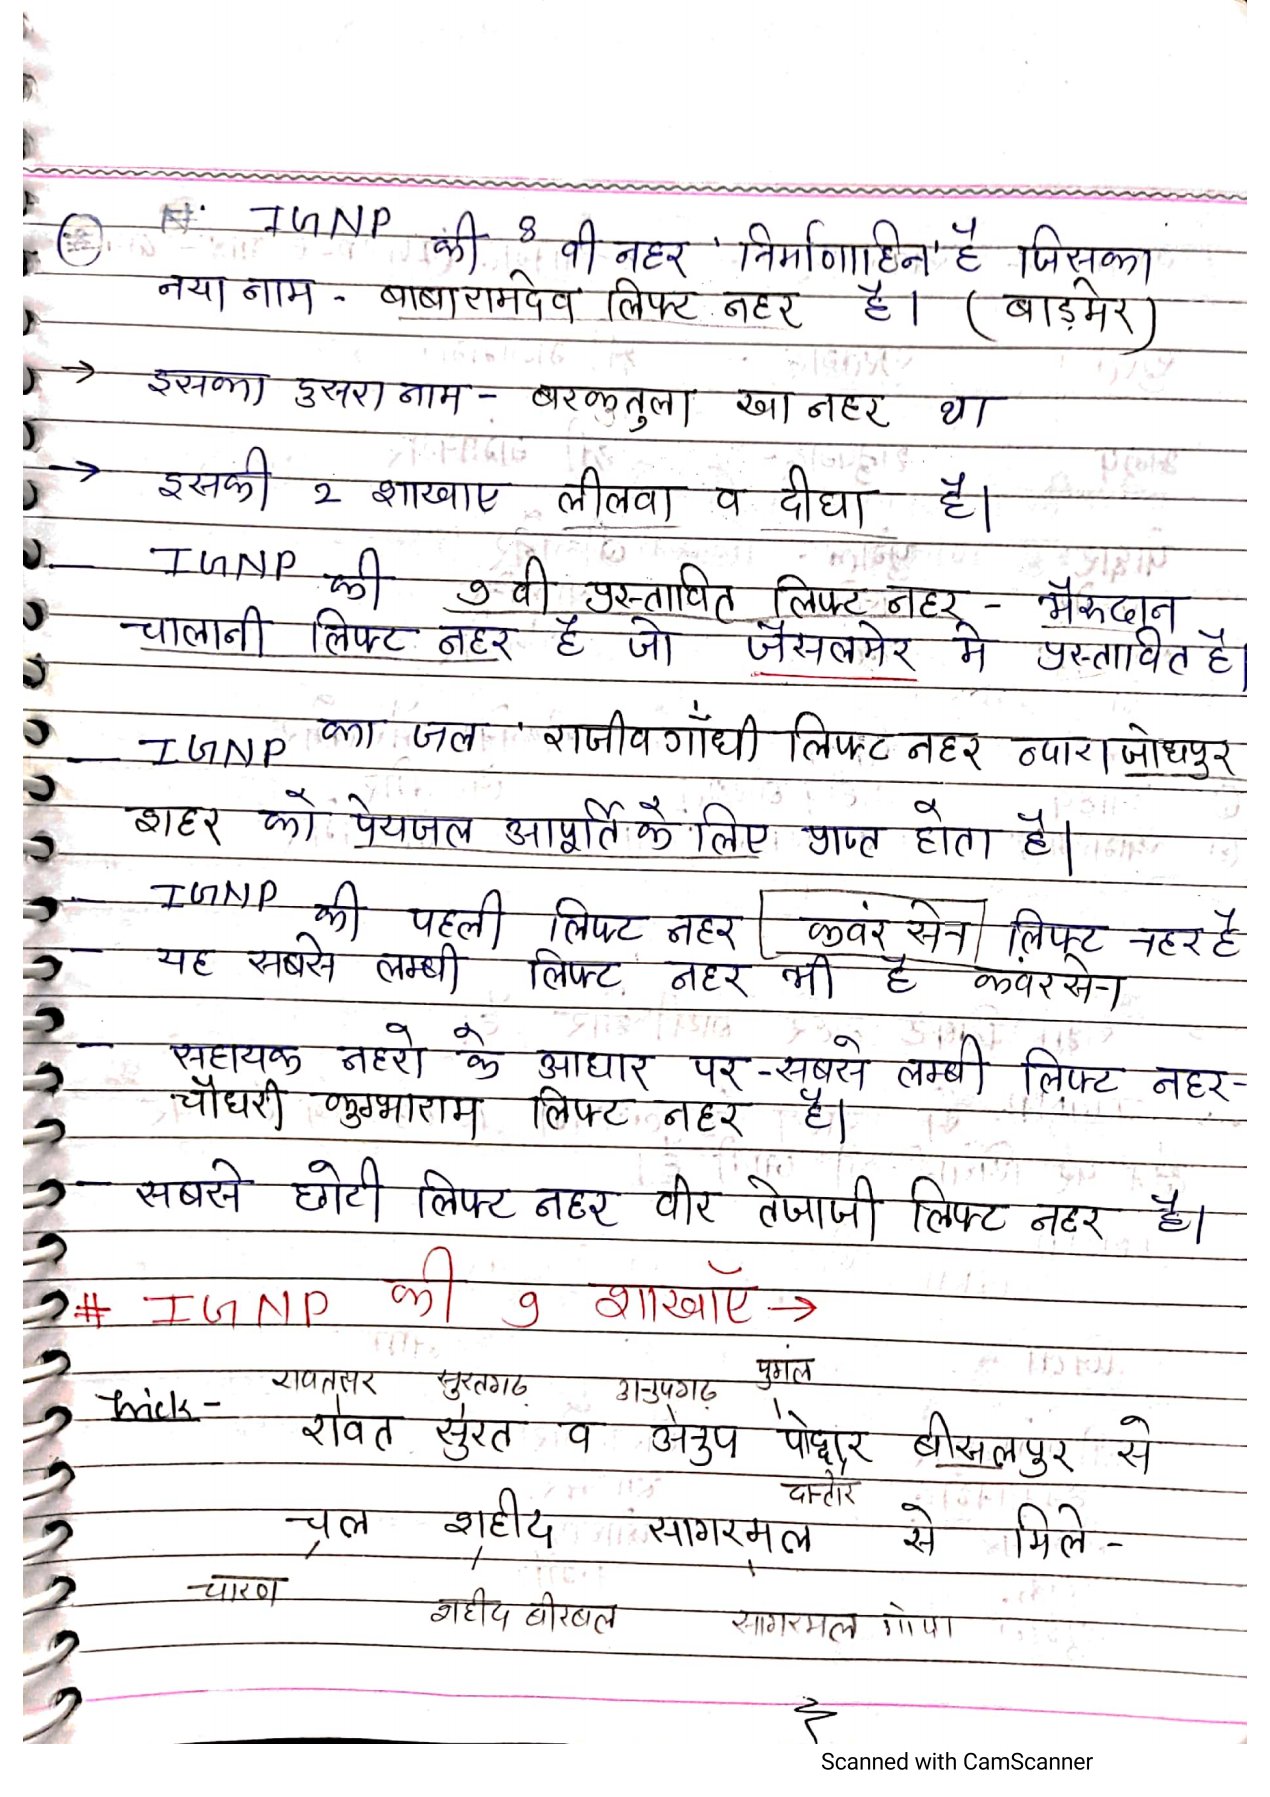 IGNP की 8 वी नहर 'निर्माणाधिन' है जिसका
नया नाम - बाबा रामदेव लिफ्ट नहर है। (बाड़मेर)
→ इसका दुसरा नाम - बरकतुला खा नहर था
→ इसकी 2 शाखाए लीलवा व दीघा है।
IGNP की 9 वी प्रस्तावित लिफ्ट नहर - भैरुदान
चालानी लिफ्ट नहर है जो जैसलमेर मे प्रस्तावित है।
- IGNP का जल 'राजीव गाँधी लिफ्ट नहर द्वारा जोधपुर
शहर को पेयजल आपूर्ति के लिए प्राप्त होता है।
- IGNP की पहली लिफ्ट नहर कवंर सेन लिफ्ट नहर है
- यह सबसे लम्बी लिफ्ट नहर भी है कवर सेन
- सहायक नहरो के आधार पर - सबसे लम्बी लिफ्ट नहर -
चौधरी कुम्भाराम लिफ्ट नहर है।
- सबसे छोटी लिफ्ट नहर वीर तेजाजी लिफ्ट नहर है।
# IGNP की 9 शाखाएँ →
रावतसर सुरतगढ़ अनुपगढ़ पुगल
trick - रावत सुरत व अनुप पोद्दार बीसलपुर से
दान्तोर
चल शहीद सागरमल से मिले -
चारण शहीद बीरबल सागरमल गोपा
Scanned with CamScanner